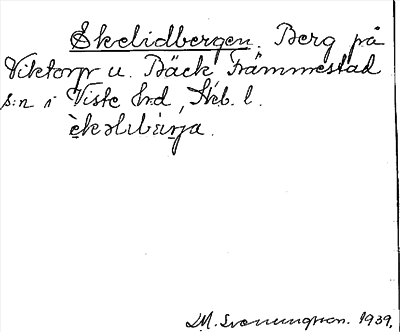 Skelidbergen. Berg på
Viktorp u. Bäck Främmestad
s:n i Viste hrd, Skb. l.
D.M. Svenungsson. 1939.